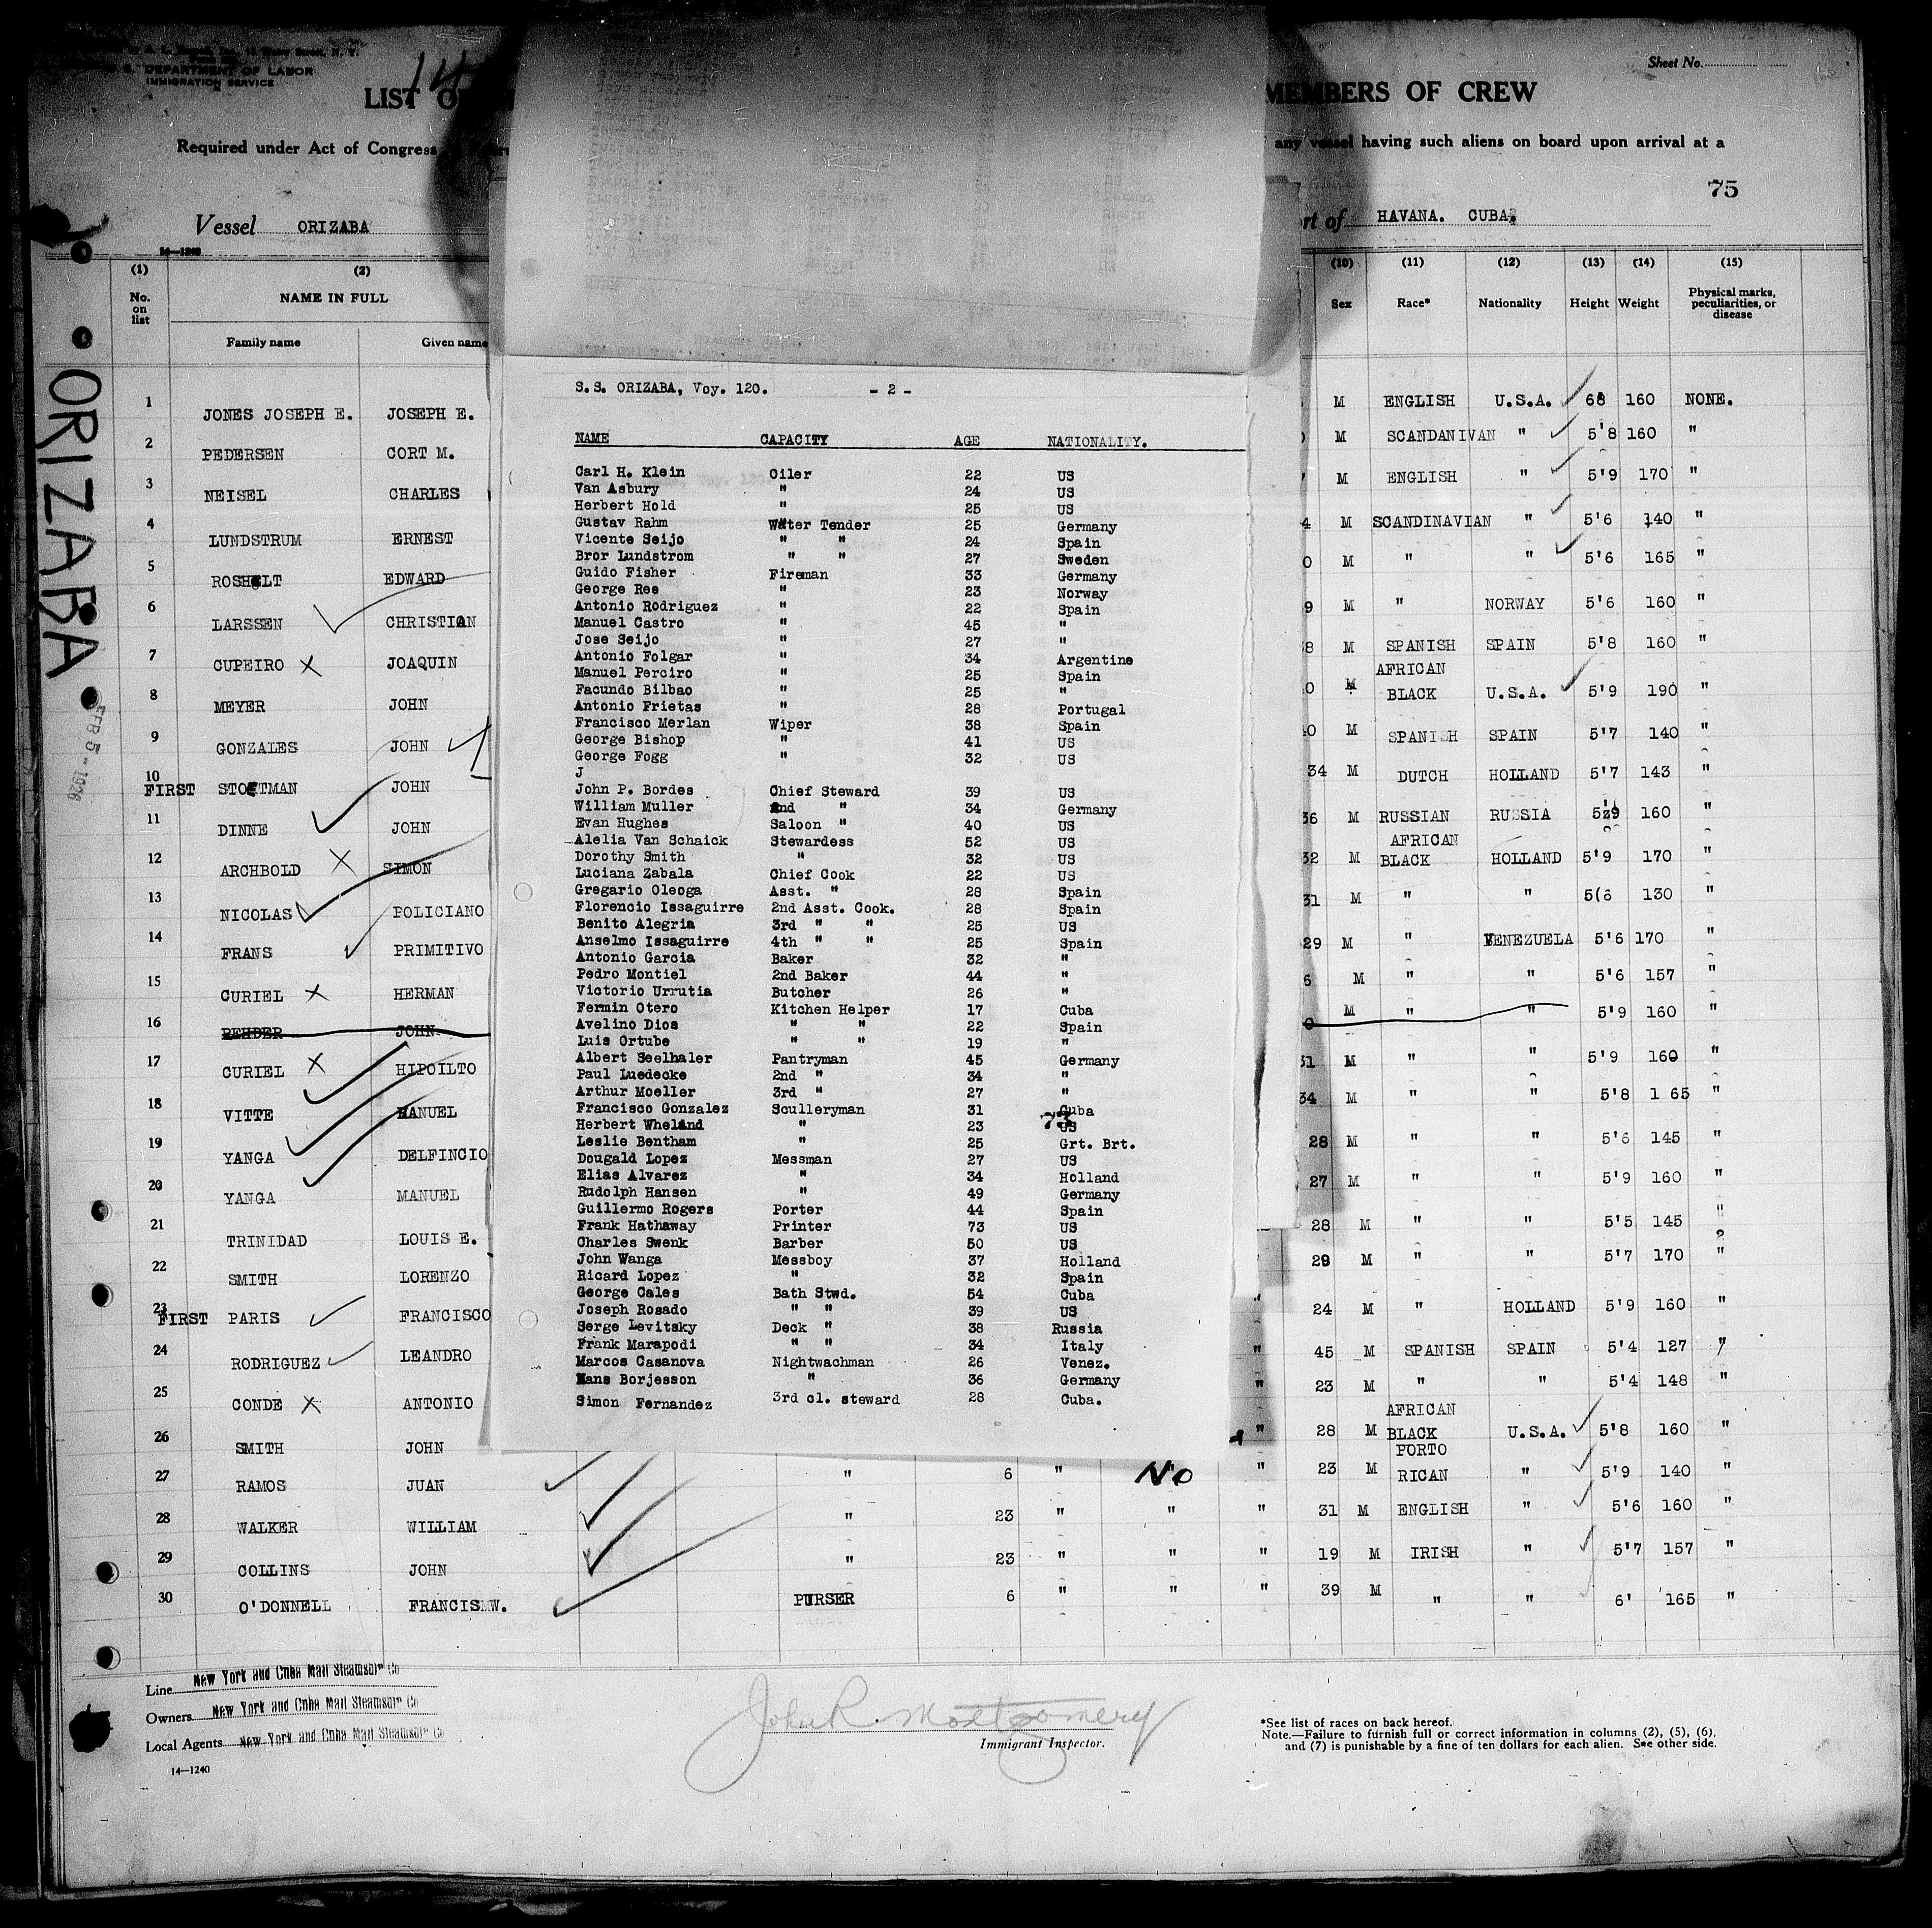 S. DEPARTMENT OF LABOR
IMMIGRATION SERVICE
14
LIST
MEMBERS OF CREW
Sheet No.
Required under Act of Congress
any vessel having such aliens on board upon arrival at a
75
Vessel ORIZABA
rt of HAVANA. CUBA.
14—1240
(1) (2) (10) (11) (12) (13) (14) (15)
No. on list NAME IN FULL Sex Race* Nationality Height Weight Physical marks, peculiarities, or disease
Family name Given name
ORIZABA
FEB 5 - 1926
1 JONES JOSEPH E. JOSEPH E. M ENGLISH U.S.A. 68 160 NONE.
2 PEDERSEN CORT M. M SCANDANIVAN " 5'8 160 "
3 NEISEL CHARLES M ENGLISH " 5'9 170 "
4 LUNDSTRUM ERNEST 4 M SCANDINAVIAN " 5'6 140 "
5 ROSHOLT EDWARD 0 M " " 5'6 165 "
6 LARSSEN CHRISTIAN 9 M " NORWAY 5'6 160 "
7 CUPEIRO JOAQUIN 8 M SPANISH SPAIN 5'8 160 "
8 MEYER JOHN 0 M AFRICAN BLACK U.S.A. 5'9 190 "
9 GONZALES JOHN 40 M SPANISH SPAIN 5'7 140 "
10 FIRST STOETMAN JOHN 34 M DUTCH HOLLAND 5'7 143 "
11 DINNE JOHN 36 M RUSSIAN RUSSIA 5'9 160 "
12 ARCHBOLD SIMON 32 M AFRICAN BLACK HOLLAND 5'9 170 "
13 NICOLAS POLICIANO 31 M " " 5(6 130 "
14 FRANS PRIMITIVO 29 M " VENEZUELA 5'6 170 "
15 CURIEL HERMAN 6 M " " 5'6 157 "
16 REHDER JOHN 0 M " " 5'9 160 "
17 CURIEL HIPOILTO 31 M " " 5'9 160 "
18 VITTE MANUEL 34 M " " 5'8 1 65 "
19 YANGA DELFINCIO 28 M " " 5'6 145 "
20 YANGA MANUEL 27 M " " 5'9 160 "
21 TRINIDAD LOUIS E. 28 M " " 5'5 145 "
22 SMITH LORENZO 29 M " " 5'7 170 "
23 FIRST PARIS FRANCISCO " 24 M " HOLLAND 5'9 160 "
24 RODRIGUEZ LEANDRO " 45 M SPANISH SPAIN 5'4 127 "
25 CONDE ANTONIO " 23 M " " 5'4 148 "
26 SMITH JOHN " 28 M AFRICAN BLACK U.S.A. 5'8 160 "
27 RAMOS JUAN " 6 " NO " 23 M PORTO RICAN " 5'9 140 "
28 WALKER WILLIAM " 23 " " " 31 M ENGLISH " 5'6 160 "
29 COLLINS JOHN " 23 " " " 19 M IRISH " 5'7 157 "
30 O'DONNELL FRANCIS W. PURSER 6 " " " 39 M " " 6' 165 "
S.S. ORIZABA, Voy. 120. - 2 -
NAME CAPACITY AGE NATIONALITY.
Carl H. Klein Oiler 22 US
Van Asbury " 24 US
Herbert Hold " 25 US
Gustav Rahm Water Tender 25 Germany
Vicente Seijo " " 24 Spain
Bror Lundstrom " " 27 Sweden
Guido Fisher Fireman 33 Germany
George Ree " 23 Norway
Antonio Rodriguez " 22 Spain
Manuel Castro " 45 "
Jose Seijo " 27 "
Antonio Folgar " 34 Argentine
Manuel Perciro " 25 Spain
Facundo Bilbao " 25 "
Antonio Frietas " 28 Portugal
Francisco Merlan Wiper 38 Spain
George Bishop " 41 US
George Fogg " 32 US
J
John P. Bordes Chief Steward 39 US
William Muller 2nd " 34 Germany
Evan Hughes Saloon " 40 US
Alelia Van Schaick Stewardess 52 US
Dorothy Smith " 32 US
Luciana Zabala Chief Cook 22 US
Gregario Oleoga Asst. " 28 Spain
Florencio Issaguirre 2nd Asst. Cook. 28 Spain
Benito Alegria 3rd " " 25 US
Anselmo Issaguirre 4th " " 25 Spain
Antonio Garcia Baker 32 "
Pedro Montiel 2nd Baker 44 "
Victorio Urrutia Butcher 26 "
Fermin Otero Kitchen Helper 17 Cuba
Avelino Dios " " 22 Spain
Luis Ortube " " 19 "
Albert Seelhaler Pantryman 45 Germany
Paul Luedecke 2nd " 34 "
Arthur Moeller 3rd " 27 "
Francisco Gonzalez Sculleryman 31 Cuba
73
Herbert Wheland " 23 US
Leslie Bentham " 25 Grt. Brt.
Dougald Lopez Messman 27 US
Elias Alvarez " 34 Holland
Rudolph Hansen " 49 Germany
Guillermo Rogers Porter 44 Spain
Frank Hathaway Printer 73 US
Charles Swenk Barber 50 US
John Wanga Messboy 37 Holland
Ricard Lopez " 32 Spain
George Cales Bath Stwd. 54 Cuba
Joseph Rosado " " 39 US
Serge Levitsky Deck " 38 Russia
Frank Marapodi " " 34 Italy
Marcos Casanova Nightwachman 26 Venez.
Hans Borjesson " 36 Germany
Simon Fernandez 3rd cl. steward 28 Cuba.
Line New York and Cuba Mail Steamship Co
Owners New York and Cuba Mail Steamship Co
Local Agents New York and Cuba Mail Steamship Co
14—1240
John R. Montgomery
Immigrant Inspector.
*See list of races on back hereof.
Note.—Failure to furnish full or correct information in columns (2), (5), (6),
and (7) is punishable by a fine of ten dollars for each alien. See other side.